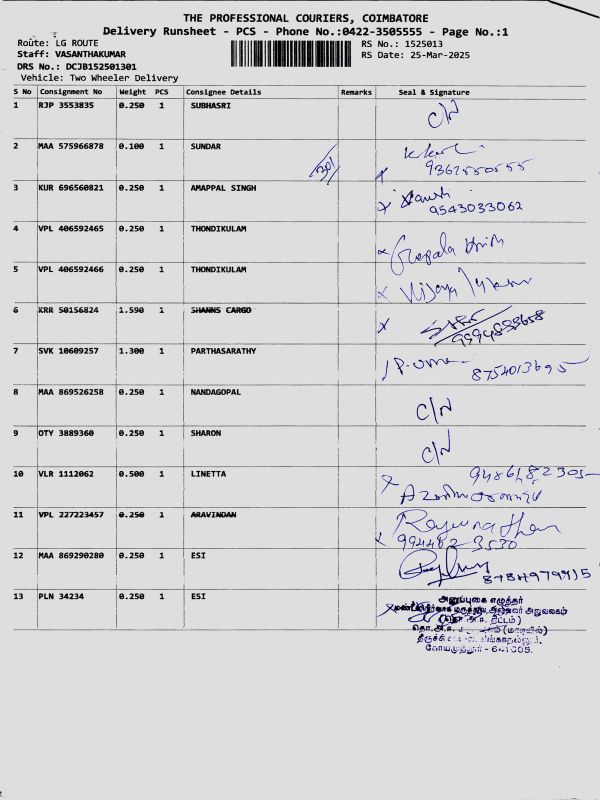 THE PROFESSIONAL COURIERS, COIMBATORE
Delivery Runsheet - PCS - Phone No.:0422-3505555 - Page No.:1
Route: LG ROUTE
RS No.: 1525013
Staff: VASANTHAKUMAR
RS Date: 25-Mar-2025
DRS No.: DCJB152501301
Vehicle: Two Wheeler Delivery
S No Consignment No Weight PCS Consignee Details Remarks Seal & Signature
1 RJP 3553835 0.250 1 SUBHASRI C/N
2 MAA 575966878 0.100 1 SUNDAR
9362550555
3 KUR 696560821 0.250 1 AMAPPAL SINGH
9543033062
4 VPL 406592465 0.250 1 THONDIKULAM
5 VPL 406592466 0.250 1 THONDIKULAM
6 KRR 50156824 1.590 1 SHANNS CARGO
7 SVK 10609257 1.300 1 PARTHASARATHY
P. uma
8754013695
8 MAA 869526258 0.250 1 NANDAGOPAL C/N
9 OTY 3889360 0.250 1 SHARON C/N
10 VLR 1112062 0.500 1 LINETTA
11 VPL 227223457 0.250 1 ARAVINDAN
12 MAA 869290280 0.250 1 ESI
13 PLN 34234 0.250 1 ESI
அனுப்புகை எழுத்தர்
அலுவலகம்
திட்டம்)
(மாடியில்)
கோயமுத்தூர் - 641005.